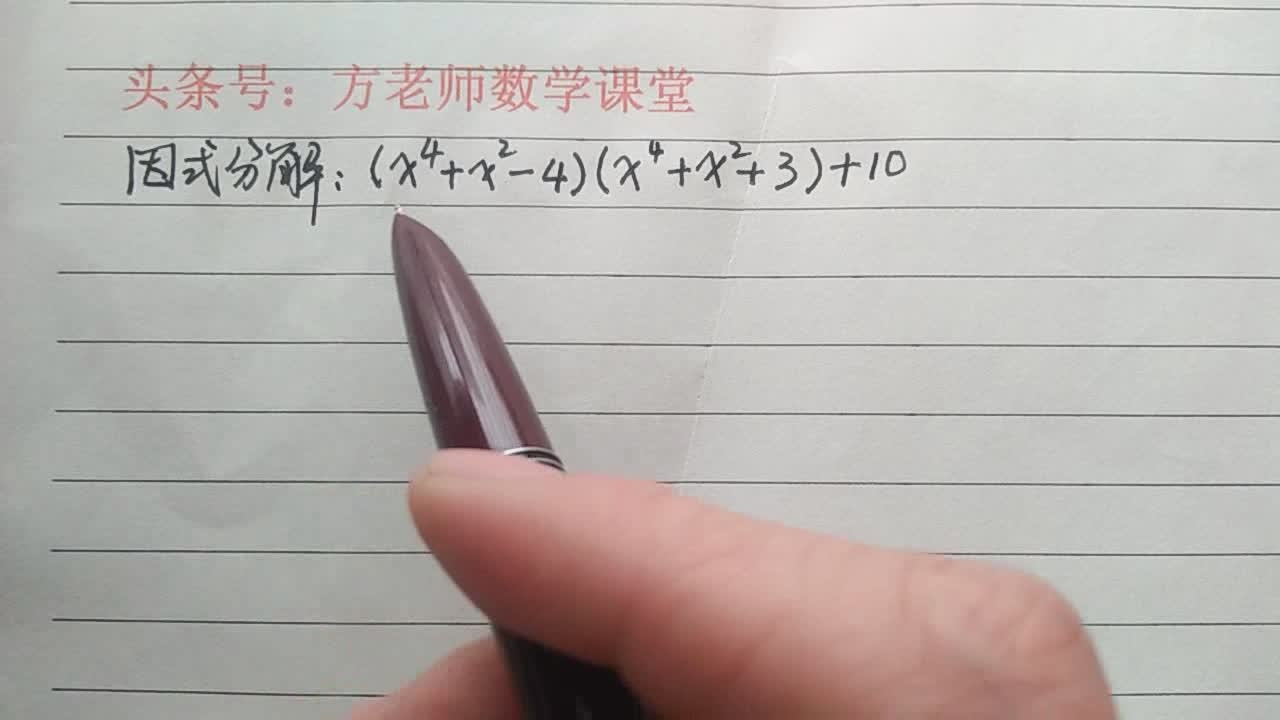 头条号：方老师数学课堂
因式分解：(x⁴+x²-4)(x⁴+x²+3)+10